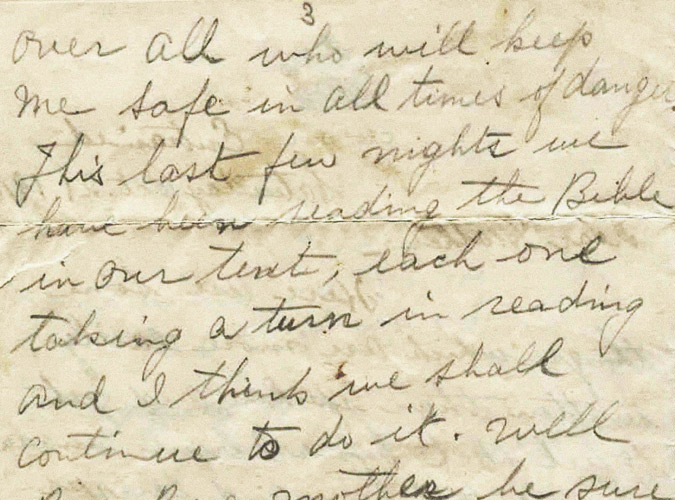 3
over all who will keep
me safe in all times of danger.
This last few nights we
have been reading the Bible
in our tent, each one
taking a turn in reading
and I think we shall
continue to do it. Well
mother be sure